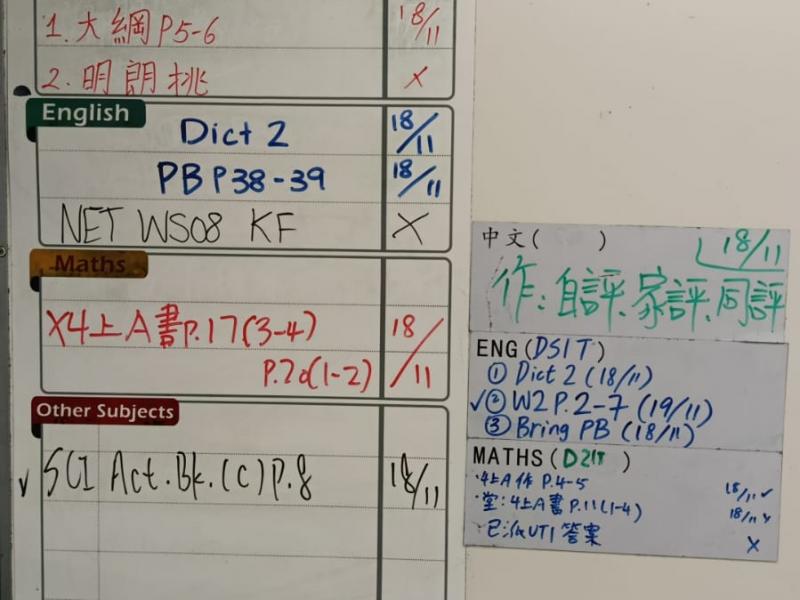 1. 大綱 P5-6 18/11
2. 明朗挑 X
English
Dict 2 18/11
PB P38-39 18/11
NET WS08 KF X
Maths
X4上A書P.17(3-4) 18/11
P.20(1-2)
Other Subjects
✓ SCI Act.Bk.(C) P.8 18/11
中文( ) 18/11
作:自評、家評、同評
ENG (DSIT)
① Dict 2 (18/11)
✓② W2 P.2-7 (19/11)
③ Bring PB (18/11)
MATHS (D2IT)
·4上A作 P.4-5 18/11 ✓
·堂:4上A書 P.11(1-4) 18/11
·已派UT1答案 X